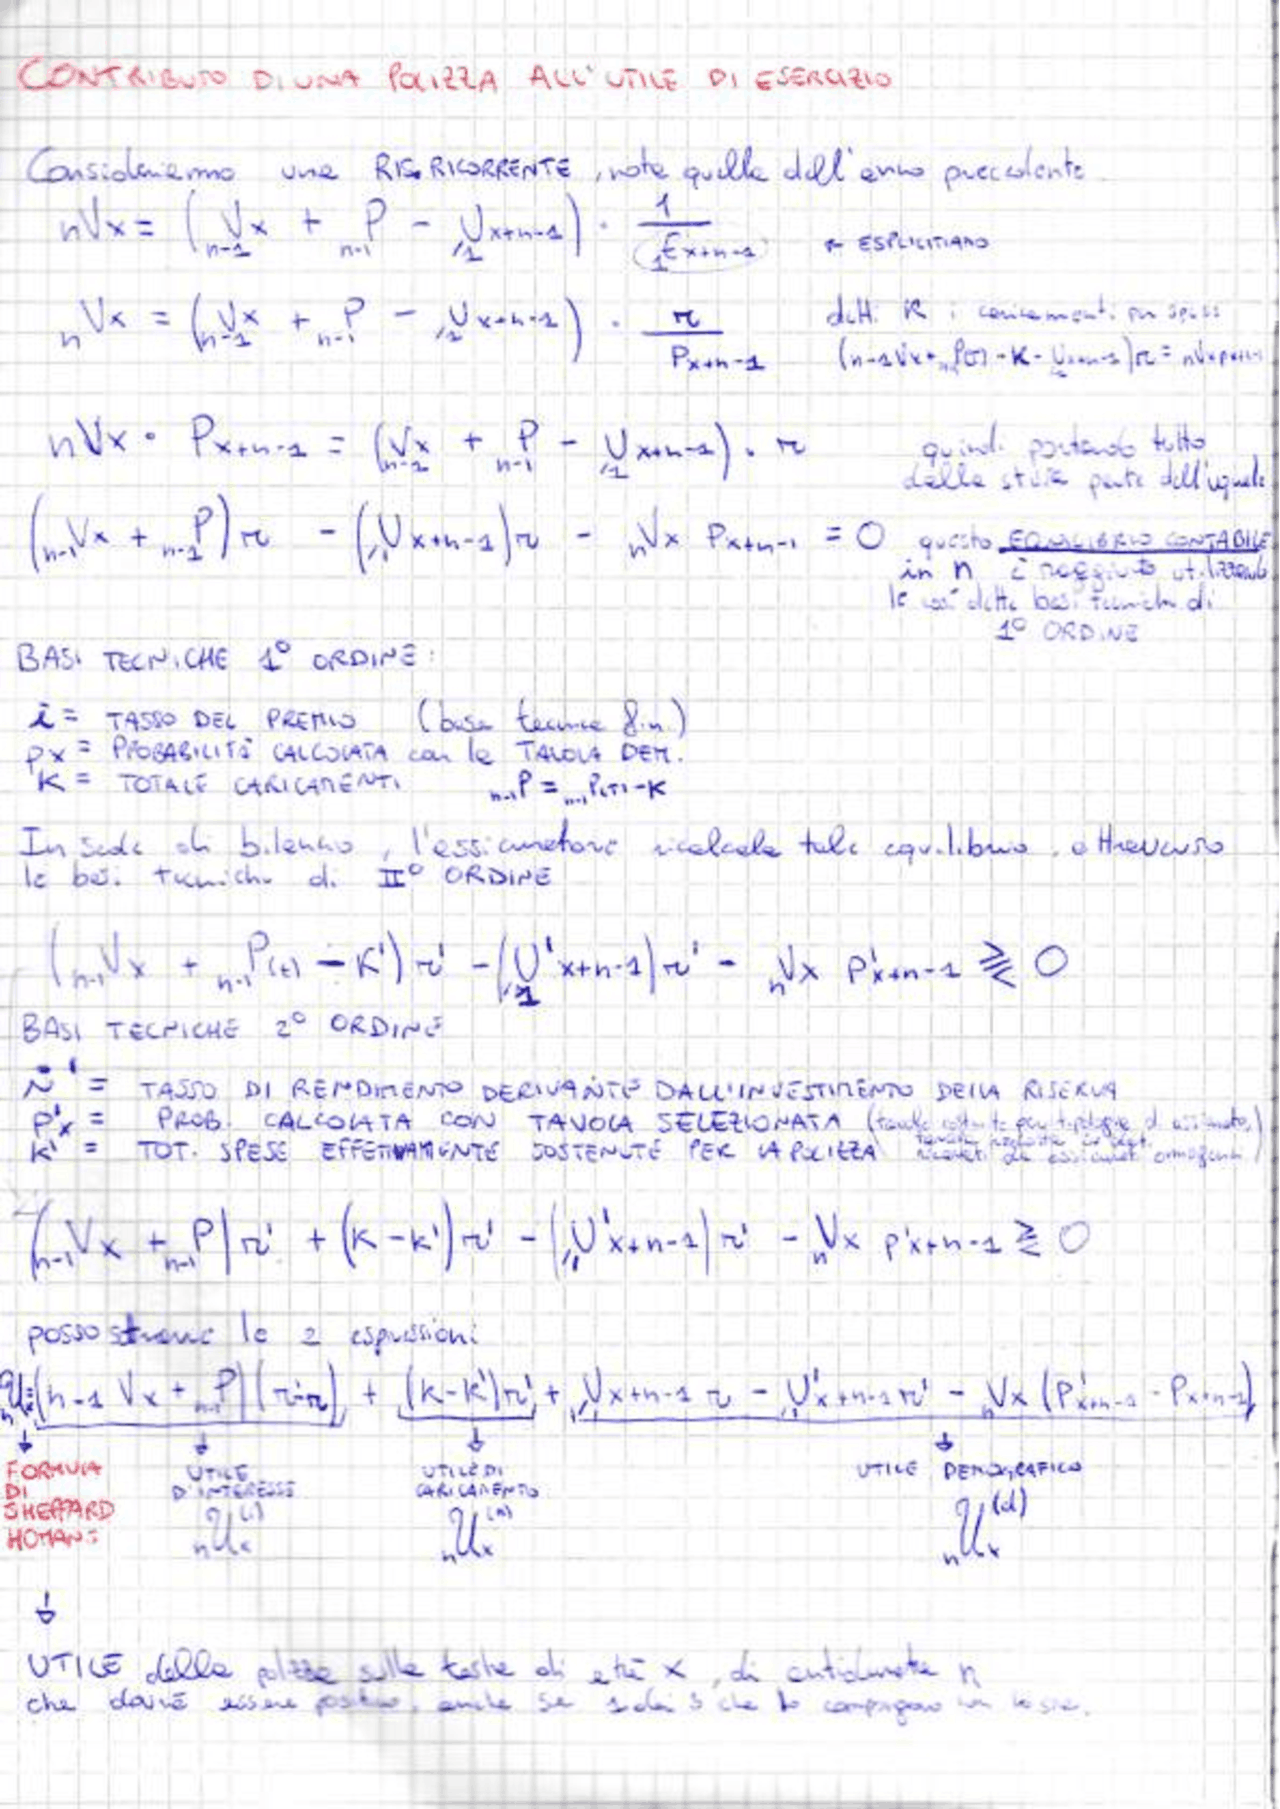 CONTRIBUTO DI UNA POLIZZA ALL'UTILE DI ESERCIZIO
Consideriamo una RIS. RICORRENTE, nota quella dell'anno precedente
nVx = (n-1Vx + n-1P - /1Ux+n-1) · 1/1Ex+n-1 ← ESPLICITIAMO
nVx = (n-1Vx + n-1P - /1Ux+n-1) · r/Px+n-1 detti K i caricamenti per spese
(n-1Vx + n-1P(T) - K - /1Ux+n-1) r = nVx px+n-1
nVx · Px+n-1 = (n-1Vx + n-1P - /1Ux+n-1) · r quindi portando tutto
dalla stessa parte dell'uguale
(n-1Vx + n-1P) r - (/1Ux+n-1) r - nVx Px+n-1 = 0 questo EQUILIBRIO CONTABILE
in n è raggiunto utilizzando
le così dette basi tecniche di
1° ORDINE
BASI TECNICHE 1° ORDINE:
i = TASSO DEL PREMIO (base tecnica fin.)
px = PROBABILITÀ CALCOLATA con le TAVOLA DEM.
K = TOTALE CARICAMENTI n-1P = n-1P(T) - K
In sede di bilancio, l'assicuratore ricalcola tale equilibrio, attraverso
le basi tecniche di II° ORDINE
(n-1Vx + n-1P(t) - K') r' - (/1U'x+n-1) r' - nVx P'x+n-1 ⋛ 0
BASI TECNICHE 2° ORDINE
i' = TASSO DI RENDIMENTO DERIVANTE DALL'INVESTIMENTO DELLA RISERVA
P'x = PROB. CALCOLATA CON TAVOLA SELEZIONATA (tavole costruite per tipologie di assicurato,
K' = TOT. SPESE EFFETTIVAMENTE SOSTENUTE PER LA POLIZZA
(n-1Vx + n-1P) r' + (K - K') r' - (/1U'x+n-1) r' - nVx p'x+n-1 ⋛ 0
posso sottrarre le 2 espressioni
nUx = (n-1Vx + n-1P) (r' - r) + (K - K') r' + /1Ux+n-1 r - /1U'x+n-1 r' - nVx (P'x+n-1 - Px+n-1)
FORMULA DI SHEPPARD HOMANS
UTILE D'INTERESSE nUx(i)
UTILE DI CARICAMENTO nUx(k)
UTILE DEMOGRAFICO nUx(d)
UTILE della polizza sulla testa di età x, di antidurata n
che dovrà essere positivo, anche se 1 dei 3 che lo compongono